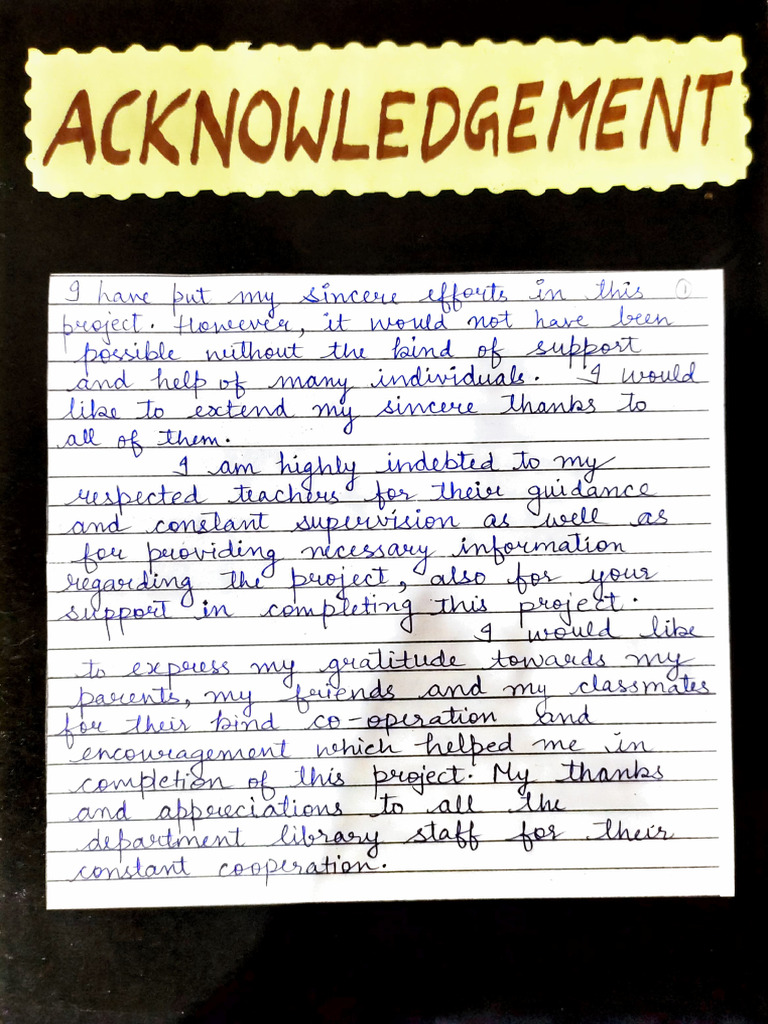 ACKNOWLEDGEMENT
I have put my sincere efforts in this 1
project. However, it would not have been
possible without the kind of support
and help of many individuals. I would
like to extend my sincere thanks to
all of them.
I am highly indebted to my
respected teachers for their guidance
and constant supervision as well as
for providing necessary information
regarding the project, also for your
support in completing this project.
I would like
to express my gratitude towards my
parents, my friends and my classmates
for their kind co-operation and
encouragement which helped me in
completion of this project. My thanks
and appreciations to all the
department library staff for their
constant cooperation.